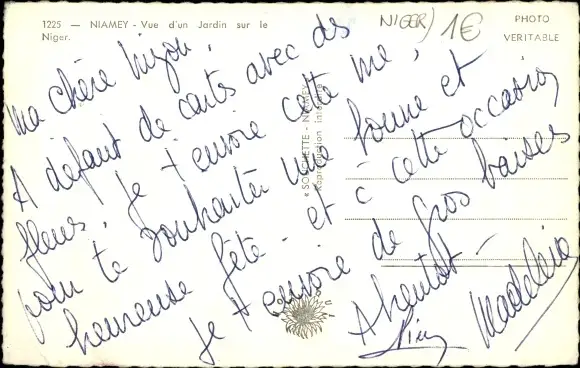 1225 — NIAMEY - Vue d'un Jardin sur le
Niger.
NIGER) 1€
PHOTO
VERITABLE
« SOCHETTE - NIAMEY
Reproduction interdite
Ma chère
A defaut de cartes avec des
fleurs, je t'envoie cette vue,
pour te souhaiter une bonne et
heureuse fête - et à cette occasion
je t'envoie de gros baisers
A bientot -
Madeleine